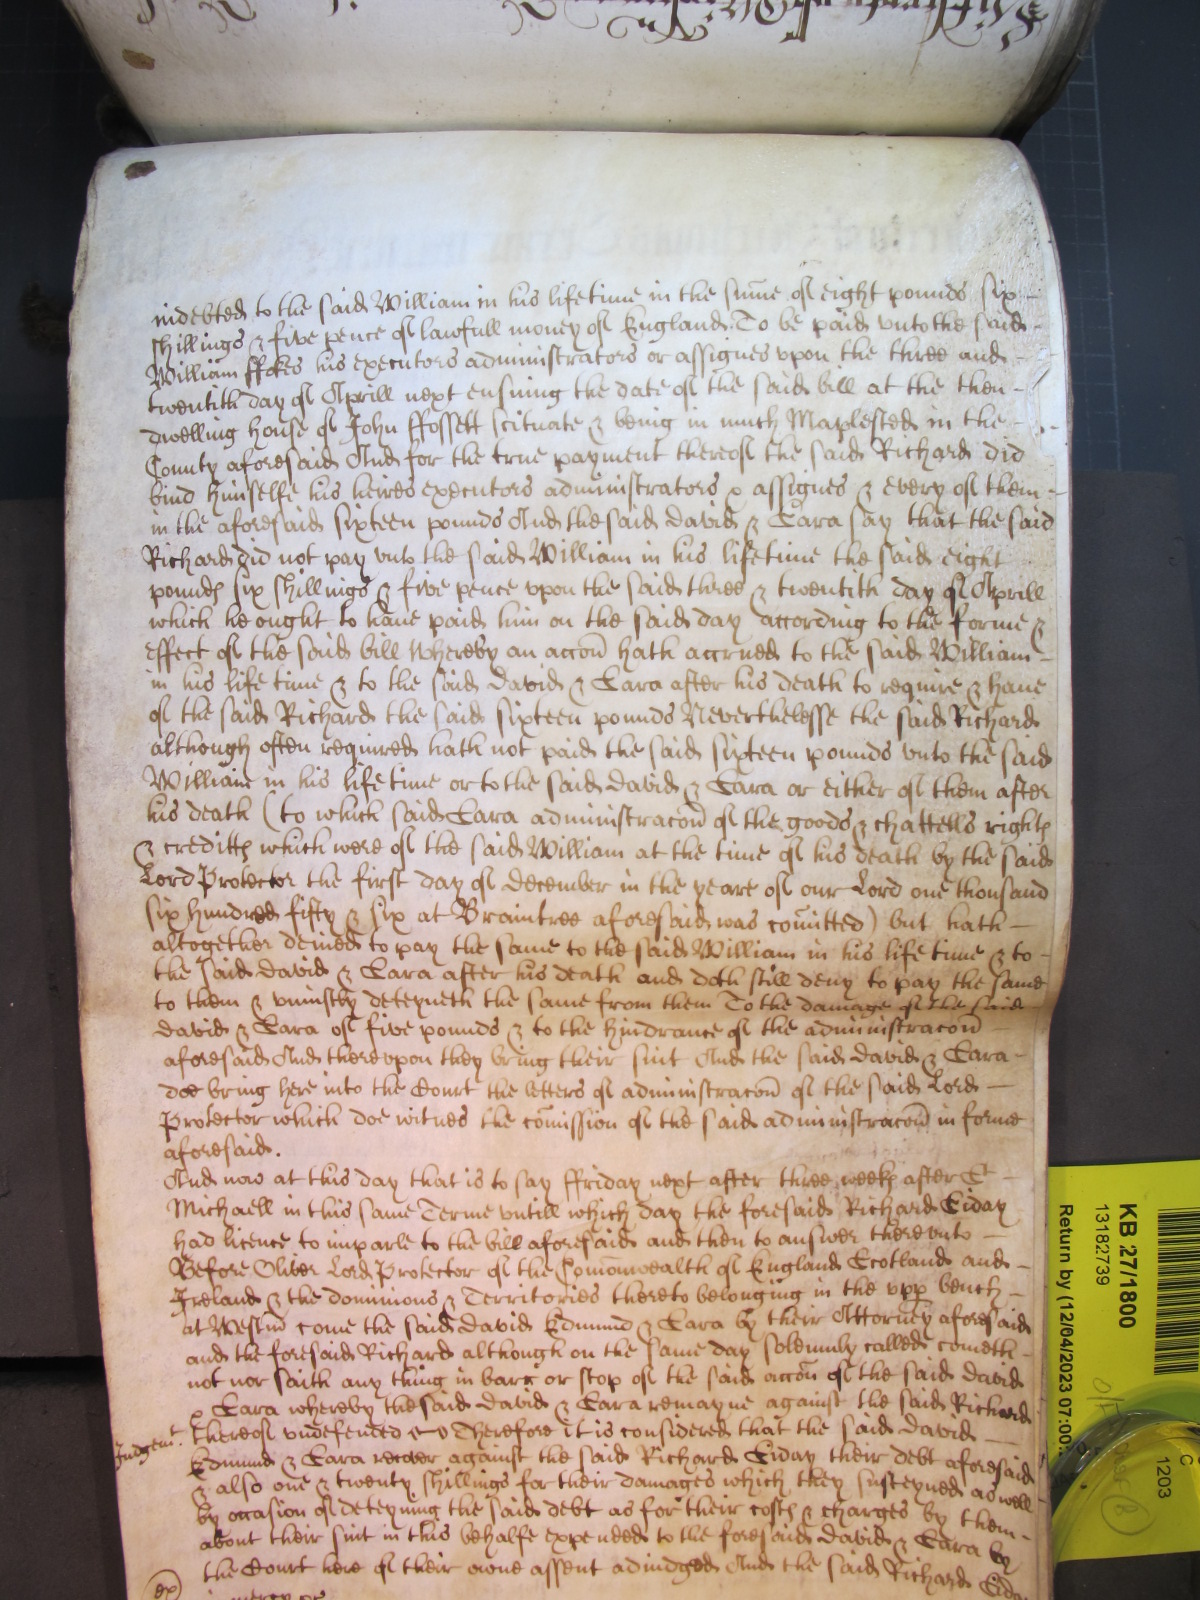 indebted to the said William in his life time in the sum̄e of eight pounds six
shillings & five pence of lawfull money of England To be paid vnto the said
William ffokes his executors administrators or assignes vpon the three and
twentith day of Aprill next ensuing the date of the said bill at the then
dwelling house of John ffossett scituate & being in much Maplested in the
County aforesaid And for the true payment thereof the said Richard did
bind himselfe his heires executors administrators & assignes & every of them
in the aforesaid sixteen pounds And the said David & Sara say that the said
Richard did not pay vnto the said William in his life time the said eight
pounds six shillings & five pence vpon the said three & twentith day of Aprill
which he ought to haue paid him on the said day according to the forme &
effect of the said bill Whereby an accōn hath accrued to the said William
in his life time & to the said David & Sara after his death to require & haue
of the said Richard the said sixteen pounds Neverthelesse the said Richard
although often required hath not paid the said sixteen pounds vnto the said
William in his life time or to the said David & Sara or either of them after
his death (to which said Sara administracōn of the goods & chattells rights
& creditts which were of the said William at the time of his death by the said
Lord Protector the first day of December in the yeare of our Lord one thousand
six hundred fifty & six at Braintree aforesaid was com̄itted) but hath
altogether denied to pay the same to the said William in his life time & to
the said David & Sara after his death and doth still deny to pay the same
to them & vniustly deteyneth the same from them To the damage of the said
David & Sara of five pounds & to the hindrance of the administracōn
aforesaid And therevpon they bring their suit And the said David & Sara
doe bring here into the Court the letters of administracōn of the said Lord
Protector which doe witnes the com̄ission of the said administracōn in forme
aforesaid.
And now at this day that is to say ffriday next after three weeks after St
Michaell in this same Terme vntill which day the foresaid Richard Eiday
had licence to imparle to the bill aforesaid and then to answer therevnto
Before Oliver Lord Protector of the Com̄onwealth of England Scotland and
Ireland & the dominions & Territories thereto belonging in the vpp bench
at Westm̄ come the said David Edmund & Sara by their Attorney aforesaid
and the foresaid Richard although on the same day solemnly called cometh
not nor saith any thing in barr or stop of the said accōn of the said David
& Sara whereby the said David & Sara remayne against the said Richard
Judgemt. thereof vndefended Therefore it is considered that the said David
Edmund & Sara recover against the said Richard Eiday their debt aforesaid
& also one & twenty shillings for their damages which they susteyned as well
by occasion of deteyning the said debt as for their costs & charges by them
about their suit in this behalfe expended to the foresaid David & Sara by
the Court here of their owne assent adiudged And the said Richard Eiday
in mercy &c
KB 27/1800
13182739
Return by (12/04/2023 07:00:
C
1203